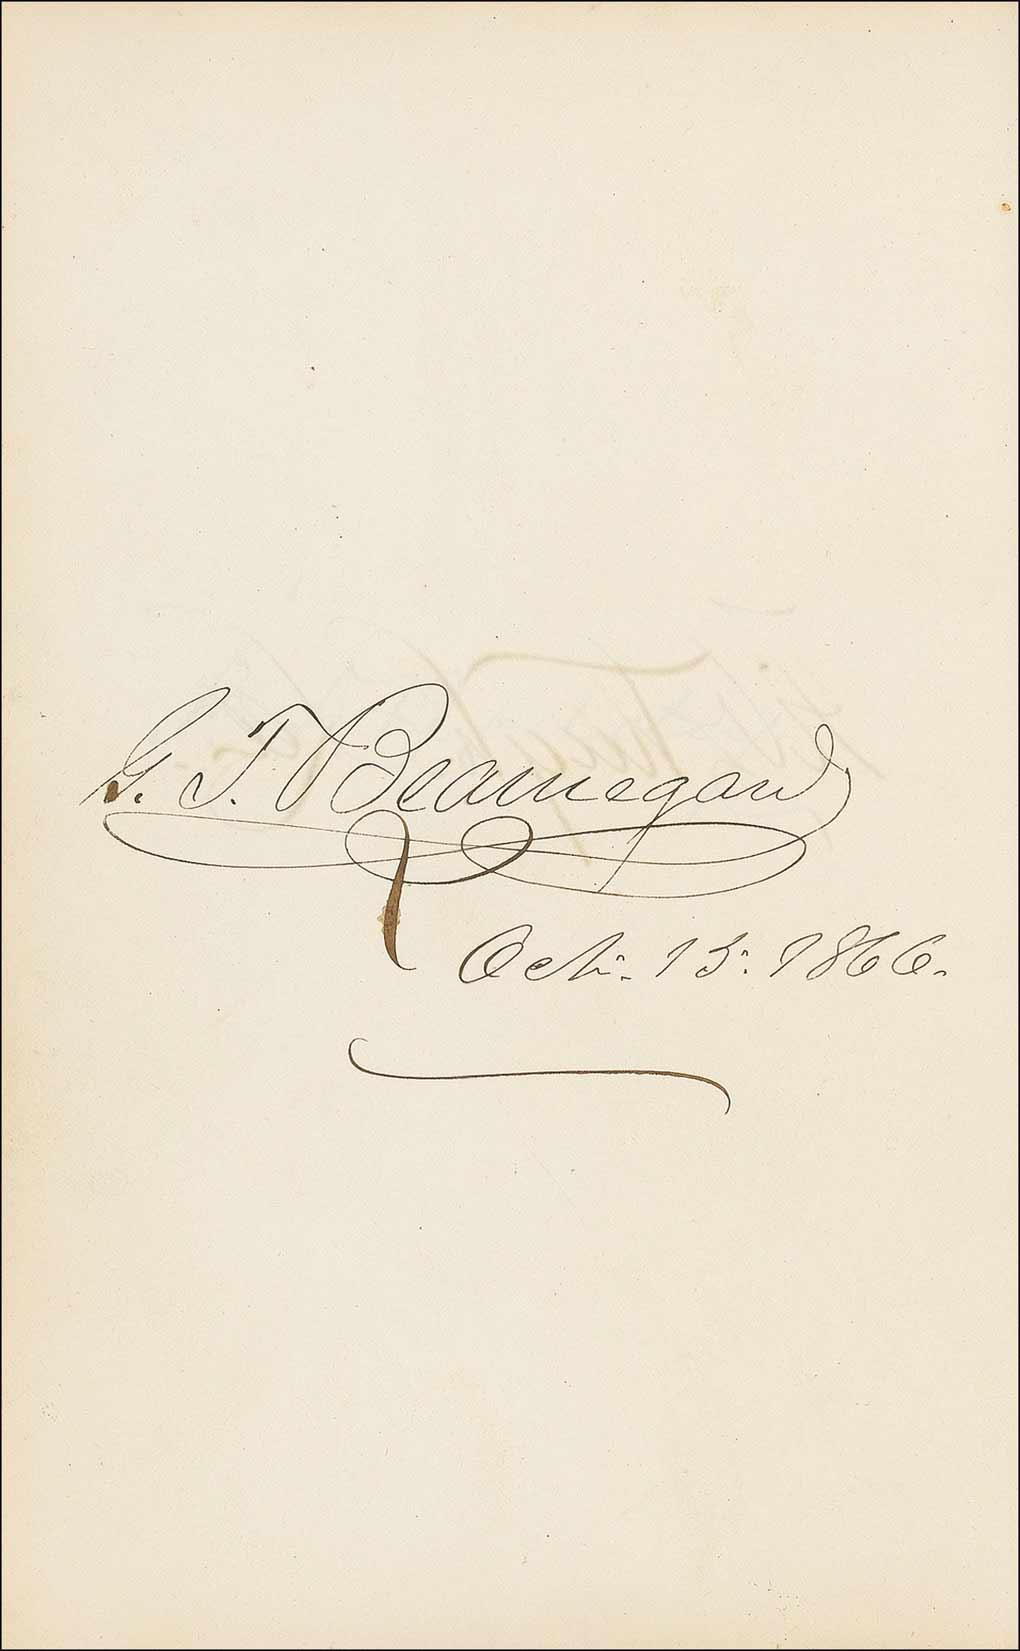 G. T. Beauregard
Oct. 15. 1866.